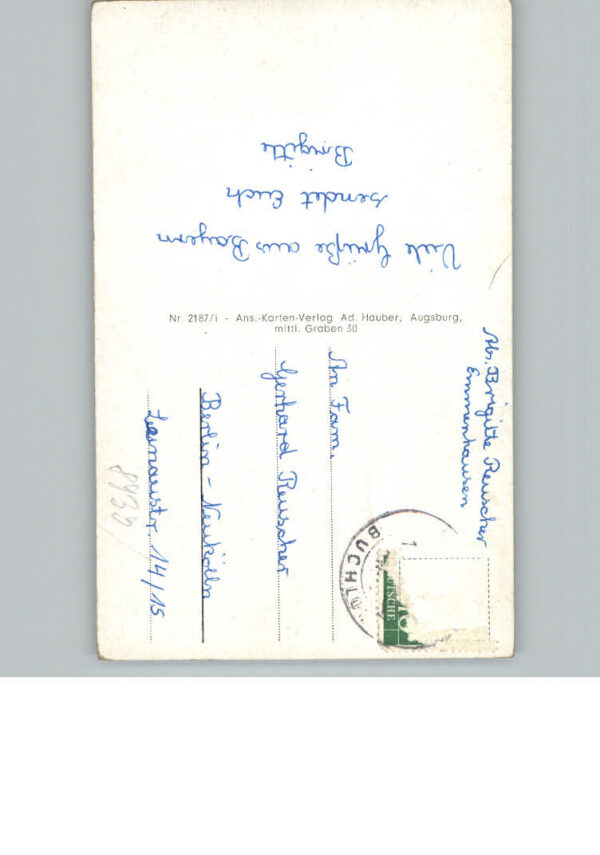 Viele Grüße aus Bayern
sendet Euch
Brigitte
Nr. 2187/i - Ans.-Karten-Verlag Ad. Hauber, Augsburg,
mittl. Graben 30
Abs. Brigitte Reuscher
Emmenhausen
An Fam.
Gerhard Reuscher
Berlin - Neukölln
14/15
BUCHL
1